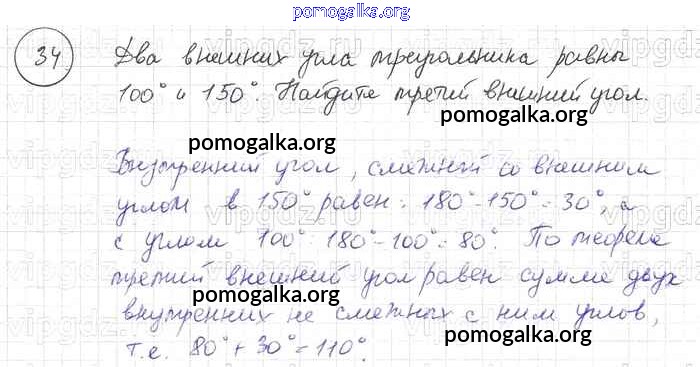 pomogalka.org
34 Два внешних угла треугольника равны
100° и 150°. Найдите третий внешний угол.
pomogalka.org pomogalka.org
Внутренний угол, смежный со внешним
углом в 150° равен: 180°-150°=30°, а
с углом 100° 180°-100°=80°. По теореме
третий внешний угол равен сумме двух
pomogalka.org
внутренних не смежных с ним углов,
pomogalka.org
т.е. 80°+30°=110°.